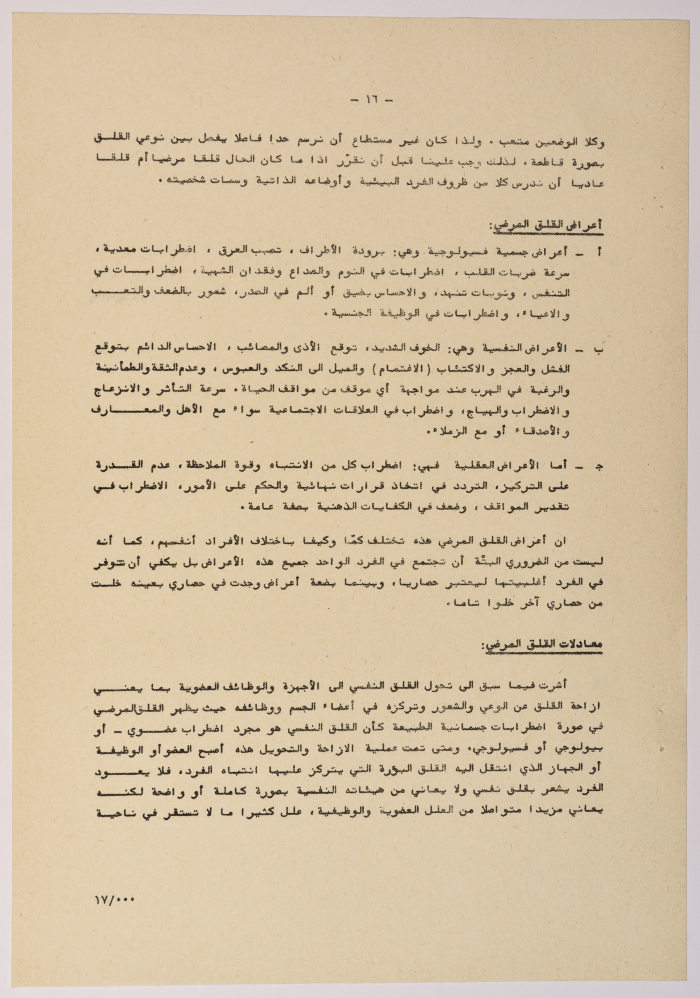 - ١٦ -
وكلا الوضعين متعب . ولذا كان غير مستطاع أن نرسم حدا فاصلا يفصل بين نوعي القلـق
بصورة قاطعة. لذلك وجب علينا قبل أن نقرّر اذا ما كان الحال قلقا مرضيا أم قلقـا
عاديا أن ندرس كلا من ظروف الفرد البيئية وأوضاعه الذاتية وسمات شخصيته .
أعراض القلق المرضي:
أ - أعراض جسمية فسيولوجية وهي: برودة الأطراف ، تصبب العرق ، اضطرابات معدية ،
سرعة ضربات القلب ، اضطرابات في النوم والصداع وفقدان الشهية، اضطرابــات في
التنفس ، ونوبات تنهد، والاحساس بضيق أو ألم في الصدر، شعور بالضعف والتعــب
والاعياء، واضطرابات في الوظيفة الجنسية .
ب - الأعراض النفسية وهي: الخوف الشديد، توقع الأذى والمصائب ، الاحساس الدائم بتوقع
الفشل والعجز والاكتئاب (الاغتمام) والميل الى النكد والعبوس ، وعدم الثقة والطمأنينة
والرغبة في الهرب عند مواجهة أي موقف من مواقف الحياة. سرعة التأثر والانزعاج
والاضطراب والهياج، واضطراب في العلاقات الاجتماعية سواء مع الأهل والمعــــارف
والأصدقاء أو مع الزملاء.
جـ - أما الأعراض العقلية فهي: اضطراب كل من الانتباه وقوة الملاحظة، عدم القــدرة
على التركيز، التردد في اتخاذ قرارات نهائية والحكم على الأمور، الاضطراب فـي
تقدير المواقف ، وضعف في الكفايات الذهنية بصفة عامة.
ان أعراض القلق المرضي هذه تختلف كمّا وكيفا باختلاف الأفراد أنفسهم، كما أنه
ليست من الضروري البتّة أن تجتمع في الفرد الواحد جميع هذه الأعراض بل يكفي أن تتوفر
في الفرد أغلبيتها ليعتبر حصاريا، وبينما بضعة أعراض وجدت في حصاري بعينه خلـت
من حصاري آخر خلوا تاما.
معادلات القلق المرضي:
أشرت فيما سبق الى تحول القلق النفسي الى الأجهزة والوظائف العضوية بما يعنــي
ازاحة القلق عن الوعي والشعور وتركزه في أعضاء الجسم ووظائفه حيث يظهر القلق المرضي
في صورة اضطرابات جسمانية الطبيعة كأن القلق النفسي هو مجرد اضطراب عضــوي - أو
بيولوجي أو فسيولوجي. ومتى تمت عملية الازاحة والتحويل هذه أصبح العضو أو الوظيفة
أو الجهاز الذي انتقل اليه القلق البؤرة التي يتركز عليها انتباه الفرد، فلا يعــــود
الفرد يشعر بقلق نفسي ولا يعاني من هيئاته النفسية بصورة كاملة أو واضحة لكنــــه
يعاني مزيدا متواصلا من العلل العضوية والوظيفية، علل كثيرا ما لا تستقر في ناحية
١٧/٠٠٠